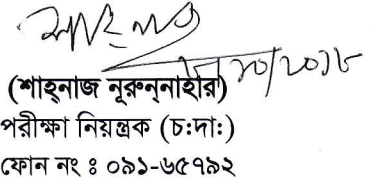 শাহনাজ
১০/২০১৮
(শাহ্‌নাজ নূরুন্‌নাহার)
পরীক্ষা নিয়ন্ত্রক (চ:দা:)
ফোন নং ঃ ০৯১-৬৫৭৯২